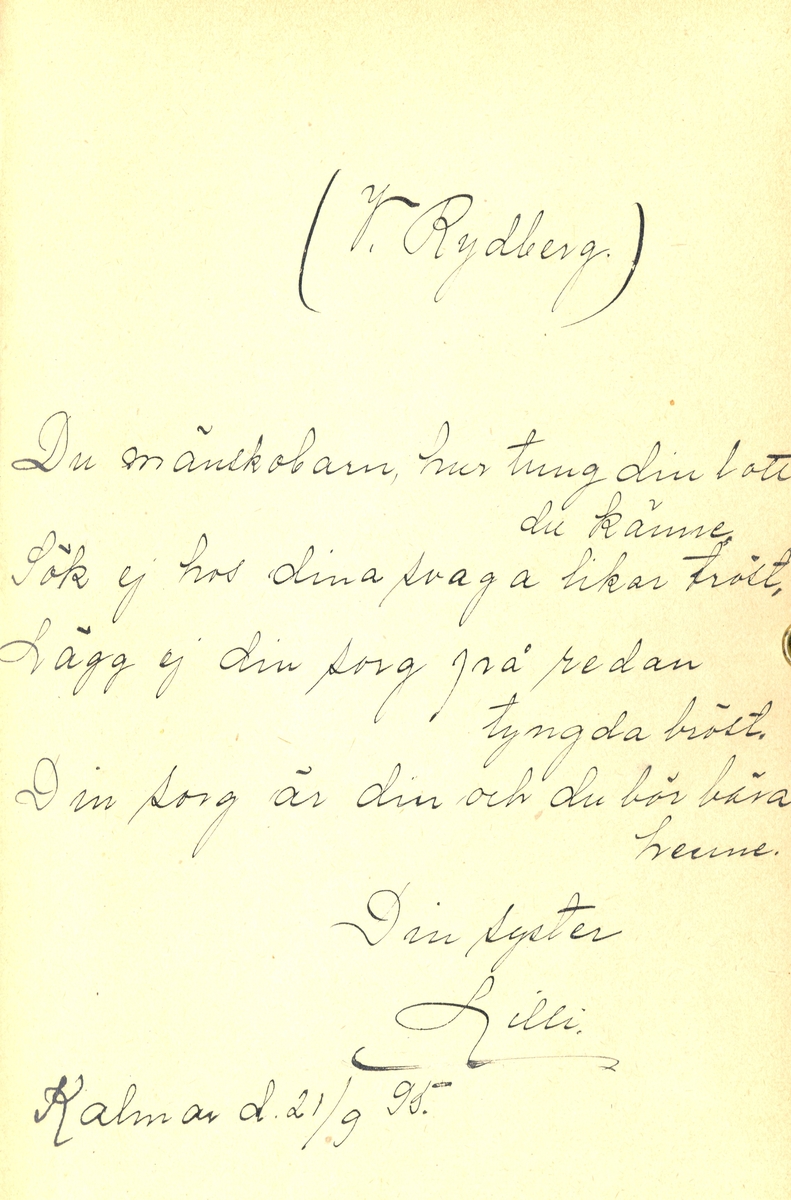 (V. Rydberg.)
Du mänskobarn, hur tung din lott
du känne,
Sök ej hos dina svaga likar tröst,
Lägg ej din sorg på redan
tyngda bröst.
Din sorg är din och du bör bära
henne.
Din syster
Lilli.
Kalmar d. 21/9 95.